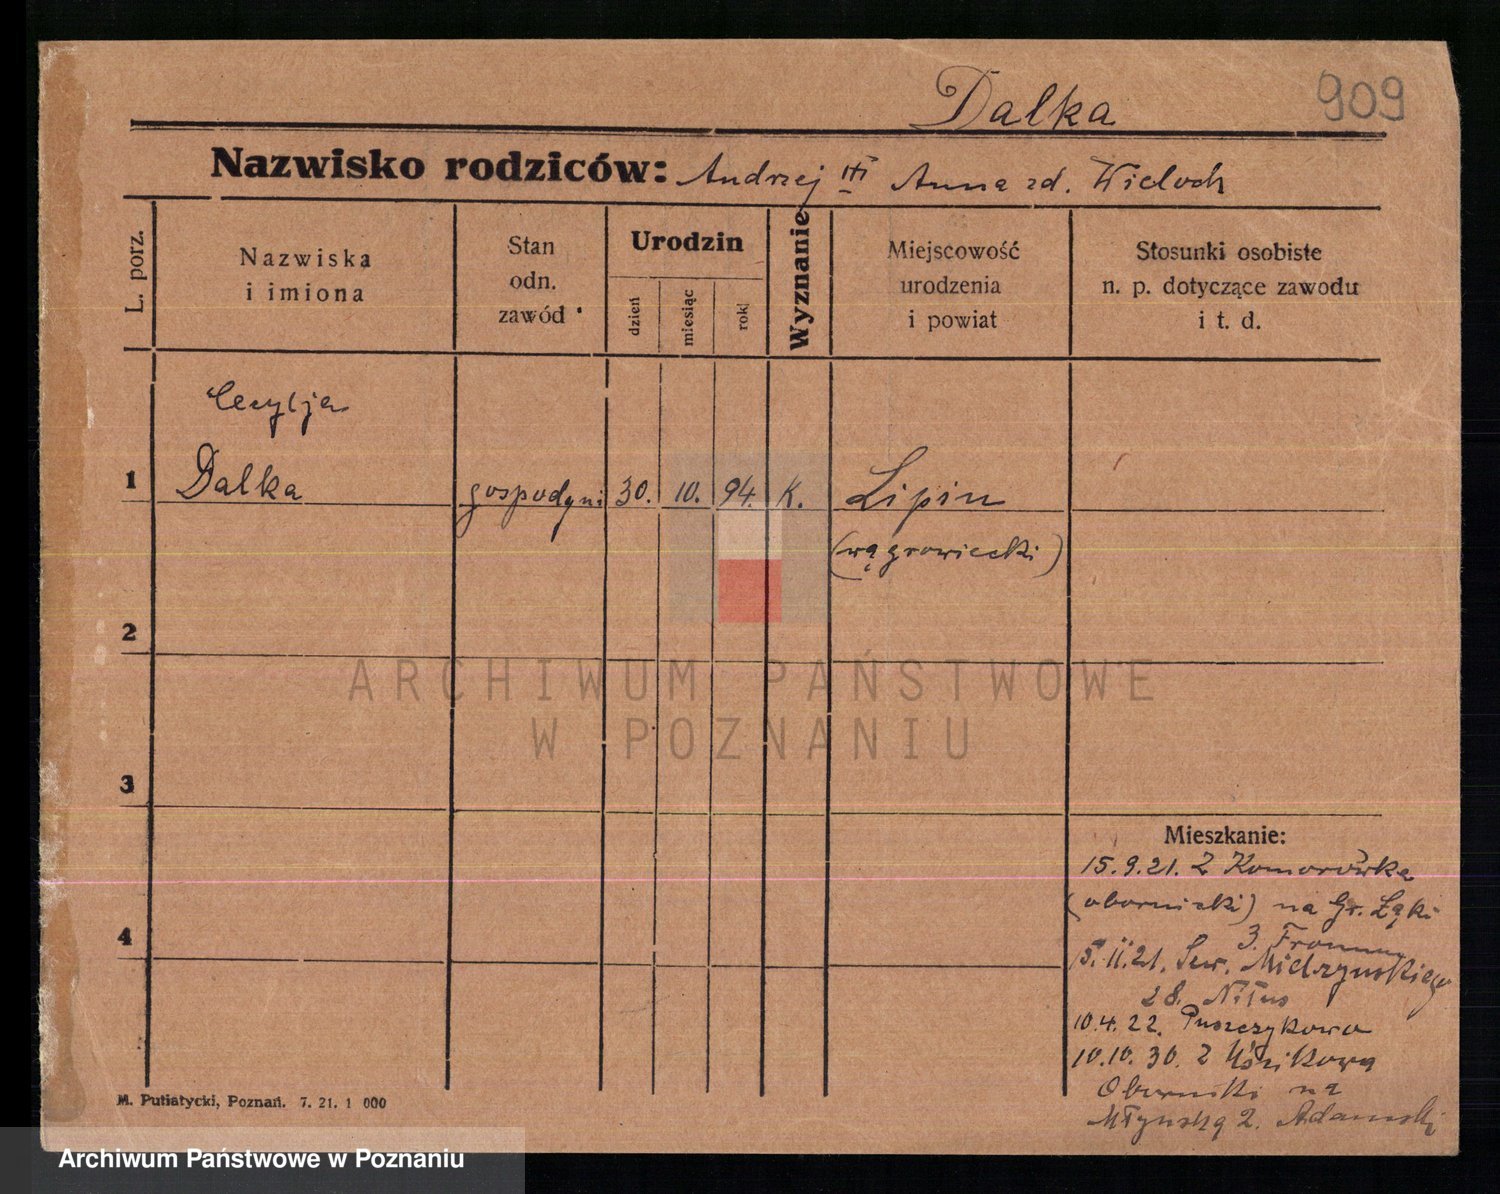 Dalka
909
Nazwisko rodziców: Andrzej i Anna zd. Wieloch
L. porz.
Nazwiska
i imiona
Stan
odn.
zawód
Urodzin
dzień
miesiąc
rok
Wyznanie
Miejscowość
urodzenia
i powiat
Stosunki osobiste
n. p. dotyczące zawodu
i t. d.
Cecylja
1 Dalka gospodyni 30. 10. 94. K. Lipin
(wągrowiecki)
2
ARCHIWUM PAŃSTWOWE
W POZNANIU
3
Mieszkanie:
15.9.21. Z Komorówka
(obornicki) na Gr. Łąki
3. Fromm
15.11.21. Sew. Mielżyńskiego
28. Nitus
4
10.4.22. Puszczykowo
10.10.30. Z
Oborniki na
Młyńską 2. Adamski
M. Putiatycki, Poznań. 7. 21. 1 000
Archiwum Państwowe w Poznaniu